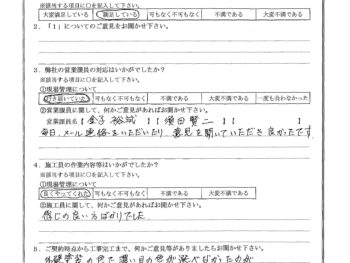 ※該当する項目に○を記入して下さい。
大変満足している 満足している 可もなく不可もなく 不満である 大変不満である
2．「1」についてのご意見をお聞かせ下さい。
3．弊社の営業課員の対応はいかがでしたか？
※該当する項目に○を記入して下さい。
①現場管理について
行き届いていた 可もなく不可もなく 不満である 大変不満である 一度も会わなかった
②営業課員に関して、何かご意見があればお聞かせ下さい。
営業課員名【金子 裕城】【須田 賢二】【 】
毎日、メール連絡をいただいたり、意見を聞いていただき良かったです。
4．施工員の作業内容等はいかがでしたか？
※該当する項目に○を記入して下さい。
①現場管理について
良くやってくれた 可もなく不可もなく 不満である 大変不満である
②施工員に関して、何かご意見があればお聞かせ下さい。
感じの良い方ばかりでした。
5．ご契約時点から工事完工まで、何かご意見等がありましたらお聞かせ下さい。
外壁塗装の色で濃い目の色が選べなかったのが